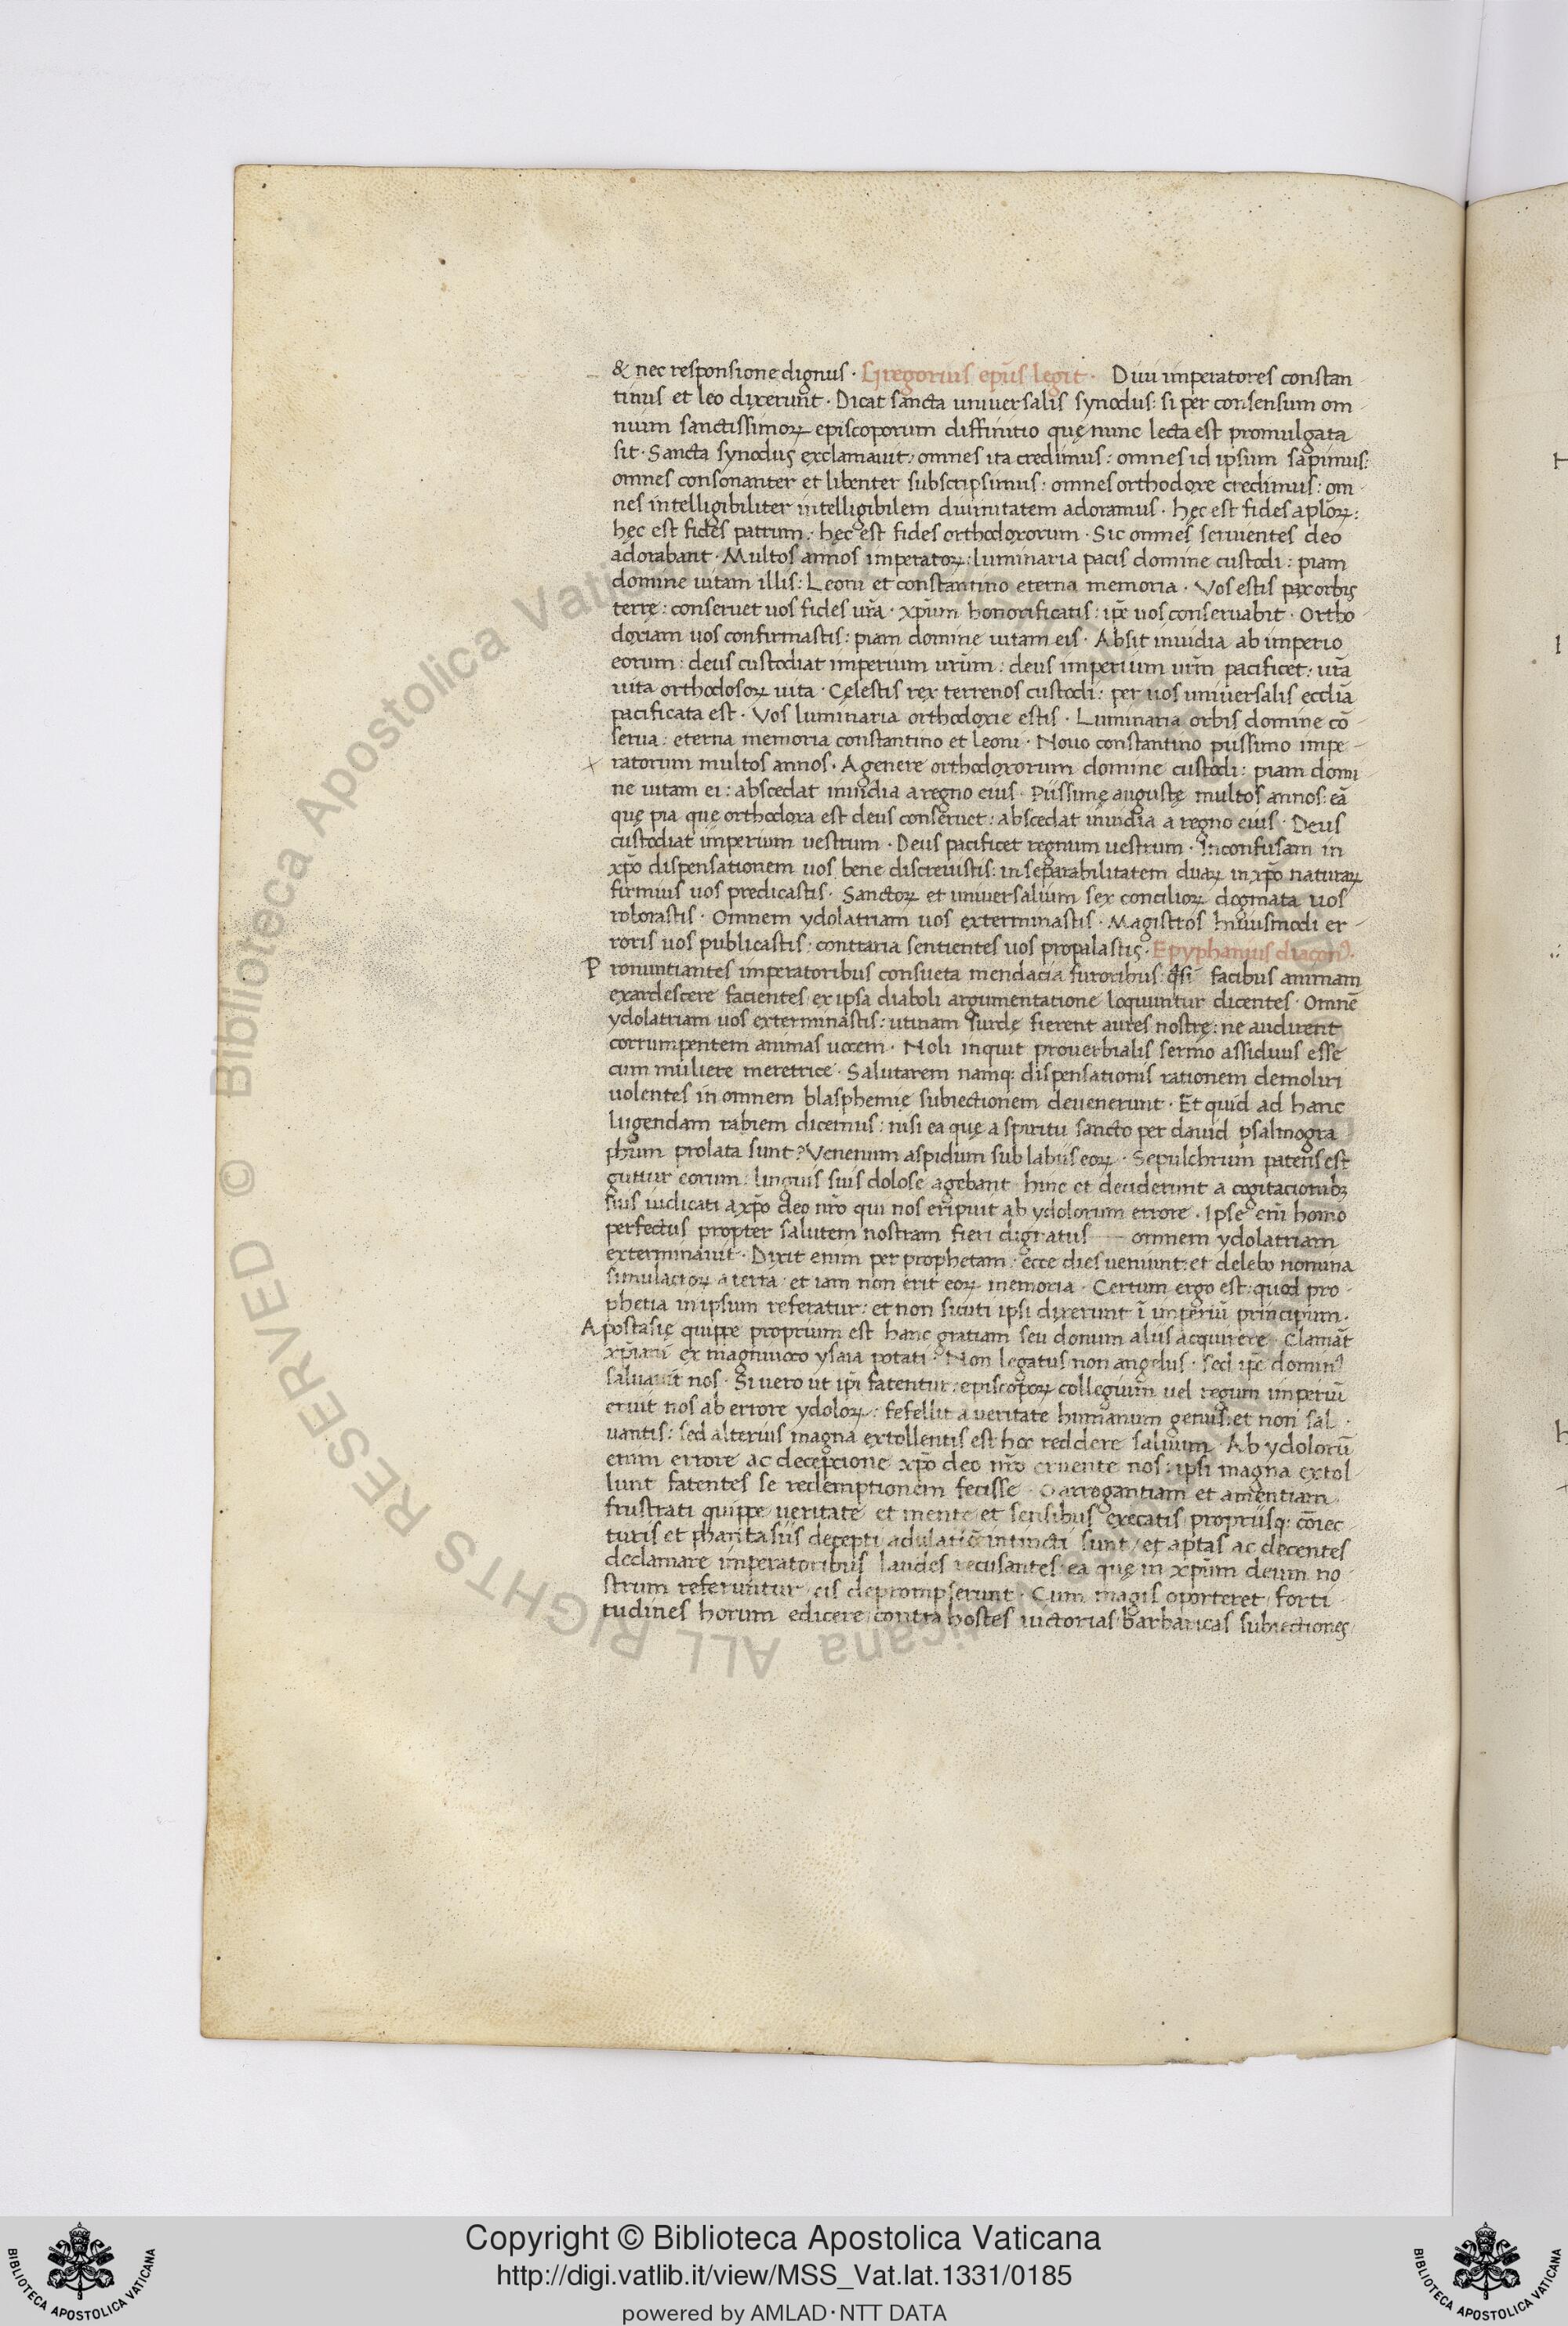 & nec responsione dignus · Gregorius ep̄us legit · Diui imperatores constan
tinus et leo dixerunt · Dicat sancta uniuersalis synodus: si per consensum om
nium sanctissimoꝝ episcoporum diffinitio quę nunc lecta est promulgata
sit · Sancta synodus exclamauit: omnes ita credimus: omnes id ipsum sapimus:
omnes consonanter et libenter subscripsimus: omnes orthodoxe credimus: om
nes intelligibiliter intelligibilem diuinitatem adoramus · hęc est fides apl̄oꝝ:
hęc est fides patrum · hęc est fides orthodoxorum · Sic omnes seruientes deo
adorabant · Multos annos imperatoꝝ: luminaria pacis domine custodi: piam
domine uitam illis: Leoni et constantino eterna memoria · Vos estis pax orbis
terrę: conseruet uos fides ur̄a · xp̄um honorificatis: ip̄e uos conseruabit · Ortho
doxiam uos confirmastis: piam domine uitam eis · Absit inuidia ab imperio
eorum: deus custodiat imperium urūm: deus imperium urm̄ pacificet · ur̄a
uita orthodosoꝝ uita · Cęlestis rex terrenos custodi: per uos uniuersalis eccl̄ia
pacificata est · Vos luminaria orthodoxie estis · Luminaria orbis domine cō
serua: eterna memoria constantino et leoni · Nouo constantino piissimo impe
ratorum multos annos · A genere orthodoxorum domine custodi: piam domi
ne uitam ei: abscedat inuidia a regno eius · Piissimę augustę multos annos: eā
quę pia quę orthodoxa est deus conseruet: abscedat inuidia a regno eius · Deus
custodiat imperium uestrum · Deus pacificet regnum uestrum · Inconfusam in
xp̄o dispensationem uos bene discreuistis: inseparabilitatem duaꝝ in xp̄o naturaꝝ
firmius uos predicastis · Sanctoꝝ et uniuersalium sex concilioꝝ dogmata uos
roborastis · Omnem ydolatriam uos exterminastis · Magistros huiusmodi er
roris uos publicastis: contraria sentientes uos propalastis · Epyphanius diaconꝰ.
Pronuntiantes imperatoribus consueta mendacia furoribus: qͣsi facibus animam
exardescere facientes ex ipsa diaboli argumentatione loquuntur dicentes · Omnē
ydolatriam uos exterminastis: utinam surdę fierent aures nostrę: ne audirent
corrumpentem animas uocem · Noli inquit prouerbialis sermo assiduus esse
cum muliere meretrice · Salutarem namq: dispensationis rationem demoliri
uolentes in omnem blasphemię subiectionem deuenerunt · Et quid ad hanc
lugendam rabiem dicemus: nisi ea quę a spiritu sancto per dauid psalmogra
phum prolata sunt? Venenum aspidum sub labiis eoꝝ · Sepulchrum patens est
guttur eorum: linguis suis dolose agebant · hinc et deciderunt a cogitacionibꝫ
suis iudicati a xp̄o deo nr̄o qui nos eripuit ab ydolorum errore · Ipse eni̅ homo
perfectus propter salutem nostram fieri dignatus — omnem ydolatriam
exterminauit · Dixit enim per prophetam: ecce dies ueniunt: et delebo nomina
simulacroꝝ a terra: et iam non erit eoꝝ memoria · Certum ergo est: quod pro
phetia in ipsum referatur: et non sicuti ipsi dixerunt ī imperiū principum ·
Apostasię quippe proprium est hanc gratiam seu donum aliis acquirere · Clamāt
xpiani ex magniuoco ysaia potati · Non legatus non angelus · sed ip̄e dominꝰ
saluauit nos · Si uero ut ip̄i fatentur: episcopoꝝ collegium uel regum imperiū
eruit nos ab errore ydoloꝝ: fefellit a ueritate humanum genus: et non sal
uantis: sed alterius magna extollentis est hoc reddere saluum · Ab ydolorū
enim errore ac deceptione xp̄o deo nr̄o eruente nos: ipsi magna extol
lunt fatentes se redemptionem fecisse · O arrogantiam et amentiam
frustrati quippe ueritate et mente et sensibus execatis propriisq: cōiec
turis et phantasiis decepti adulatiōe intincti sunt / et aptas ac decentes
declamare imperatoribus laudes recusantes: ea quę in xp̄um deum no
strum referuntur eis deprompserunt · Cum magis oporteret forti
tudines horum edicere contra hostes uictorias barbaricas subiectiones
Copyright © Biblioteca Apostolica Vaticana
http://digi.vatlib.it/view/MSS_Vat.lat.1331/0185
powered by AMLAD·NTT DATA